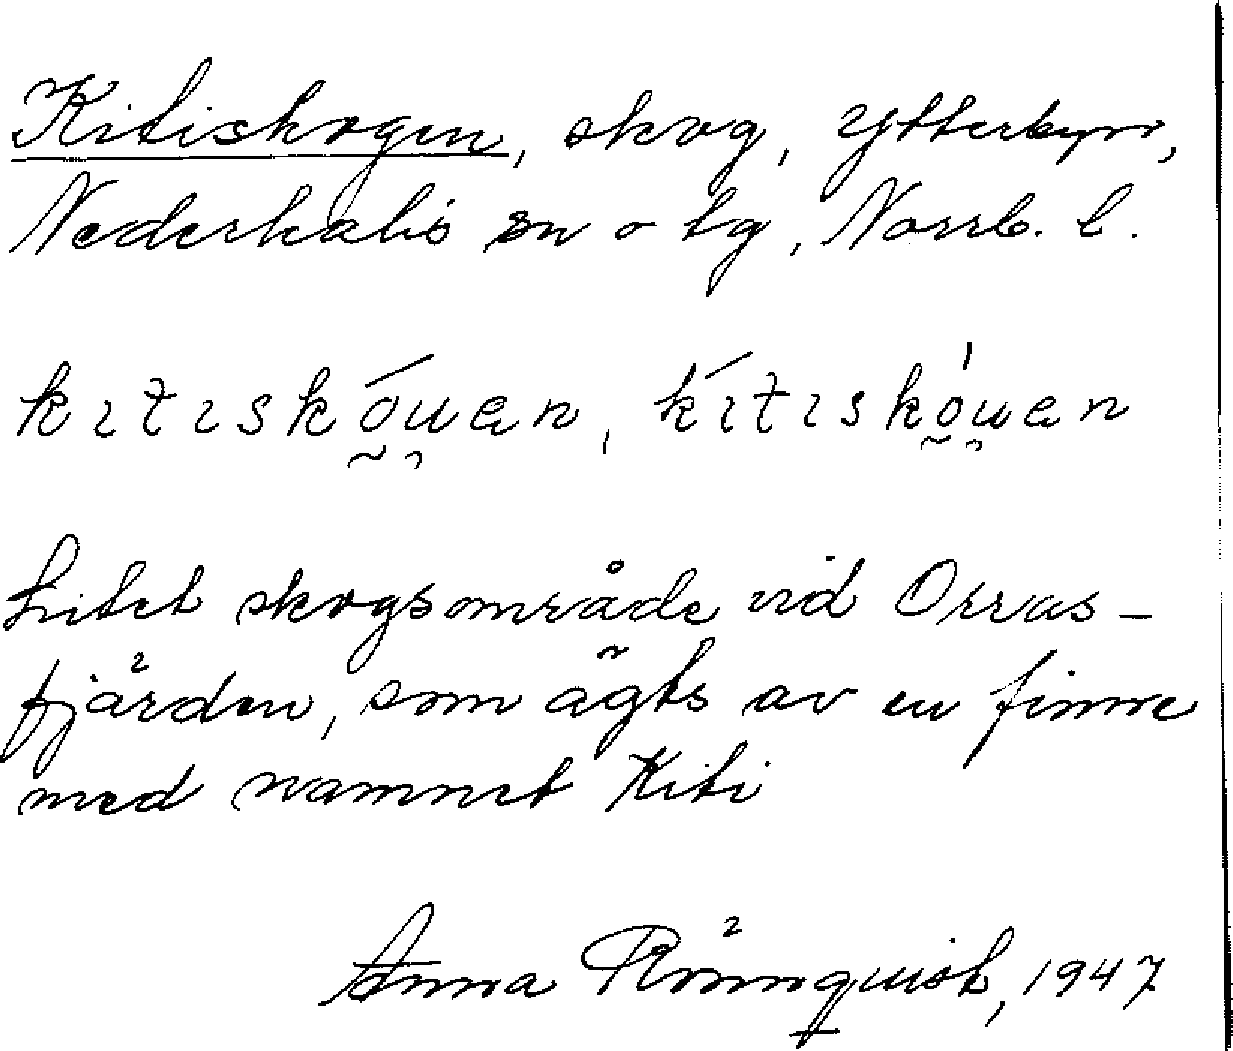 Kitiskogen, skog, Ytterbyn,
Nederkalix sn o tg, Norrb. l.
Litet skogsområde vid Orras-
fjärden, som ägts av en finne
med namnet Kiti
Anna Rönnquist, 1947